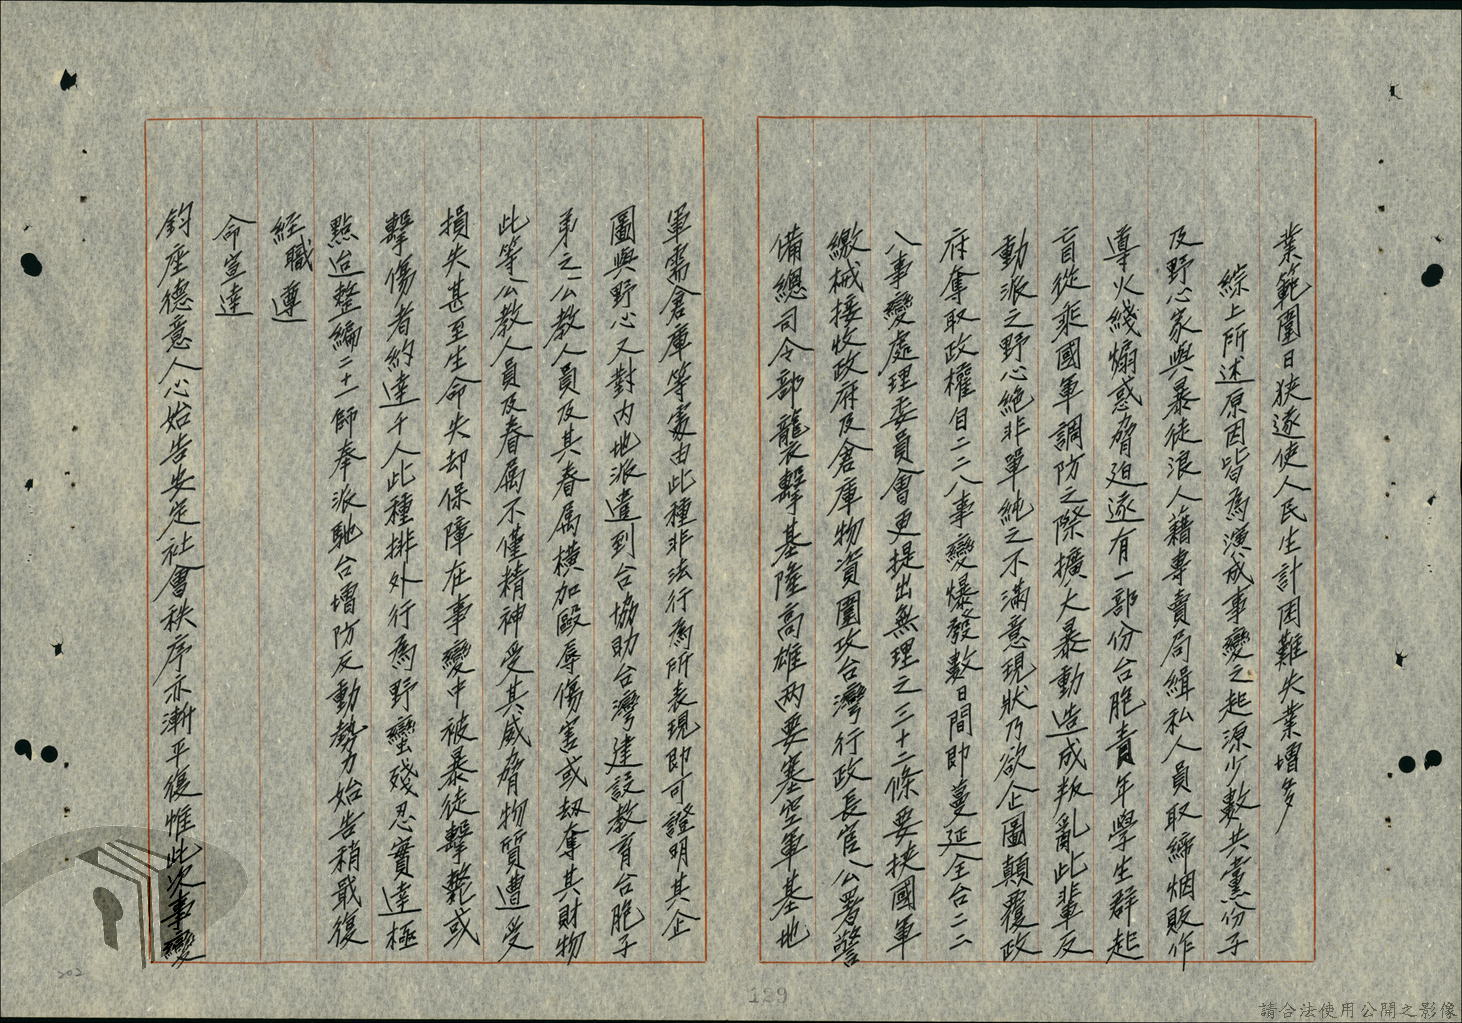 業範圍日狹遂使人民生計困難失業增多
綜上所述原因皆為演成事變之起源少數共黨份子
及野心家與暴徒浪人藉專賣局緝私人員取締烟販作
導火綫煽惑脅迫遂有一部份台胞青年學生群起
盲從乘國軍調防之際擴大暴動造成叛亂此輩反
動派之野心絕非單純之不滿意現狀乃欲企圖顛覆政
府奪取政權自二二八事變爆發數日間即蔓延全台二二
八事變處理委員會更提出無理之三十二條要挾國軍
繳械接收政府及倉庫物資圍攻台灣行政長官公署警
備總司令部襲擊基隆高雄兩要塞空軍基地
軍需倉庫等處由此種非法行為所表現即可證明其企
圖與野心又對內地派遣到台協助台灣建設教育台胞子
弟之公教人員及其眷屬橫加毆辱傷害或劫奪其財物
此等公教人員及眷屬不僅精神受其威脅物質遭受
損失甚至生命失却保障在事變中被暴徒擊斃或
擊傷者約達千人此種排外行為野蠻殘忍實達極
點迨整編二十一師奉派馳台增防反動勢力始告稍戢復
經職遵
命宣達
鈞座德意人心始告安定社會秩序亦漸平復惟此次事變
129
202
請合法使用公開之影像